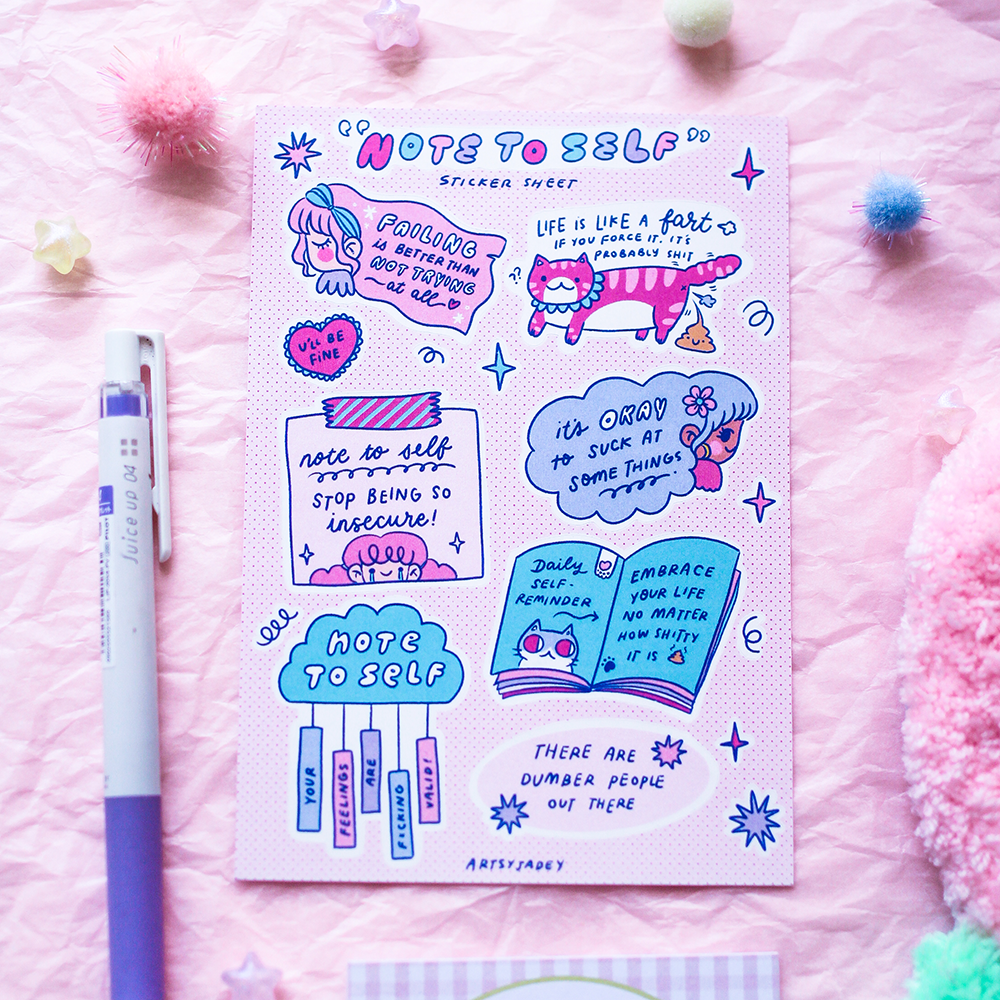 "NOTE TO SELF"
STICKER SHEET
FAILING
is BETTER THAN
NOT TRYING
at all
LIFE IS LIKE A fart
IF YOU FORCE IT. IT'S
PROBABLY SHIT
??
U'll BE
FINE
note to self
STOP BEING SO
insecure!
it's OKAY
to SUCK AT
SOME THINGS!
Daily
SELF-
REMINDER
EMBRACE
YOUR LIFE
NO MATTER
HOW SHITTY
IT IS
NOTE
TO SELF
YOUR
FEELINGS
ARE
FCKING
VALID!
THERE ARE
DUMBER PEOPLE
OUT THERE
ARTSYJADEY
Juice up 04
PILOT